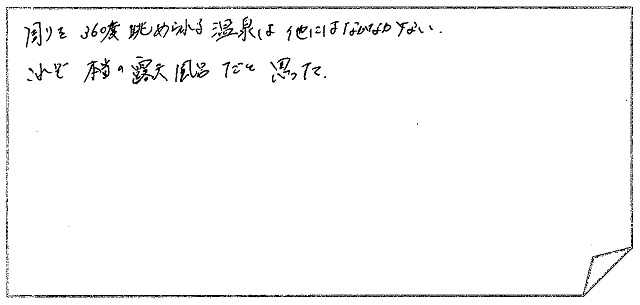 周りを360度眺められる温泉は他にはなかなかない.
これぞ本当の露天風呂だと思った.